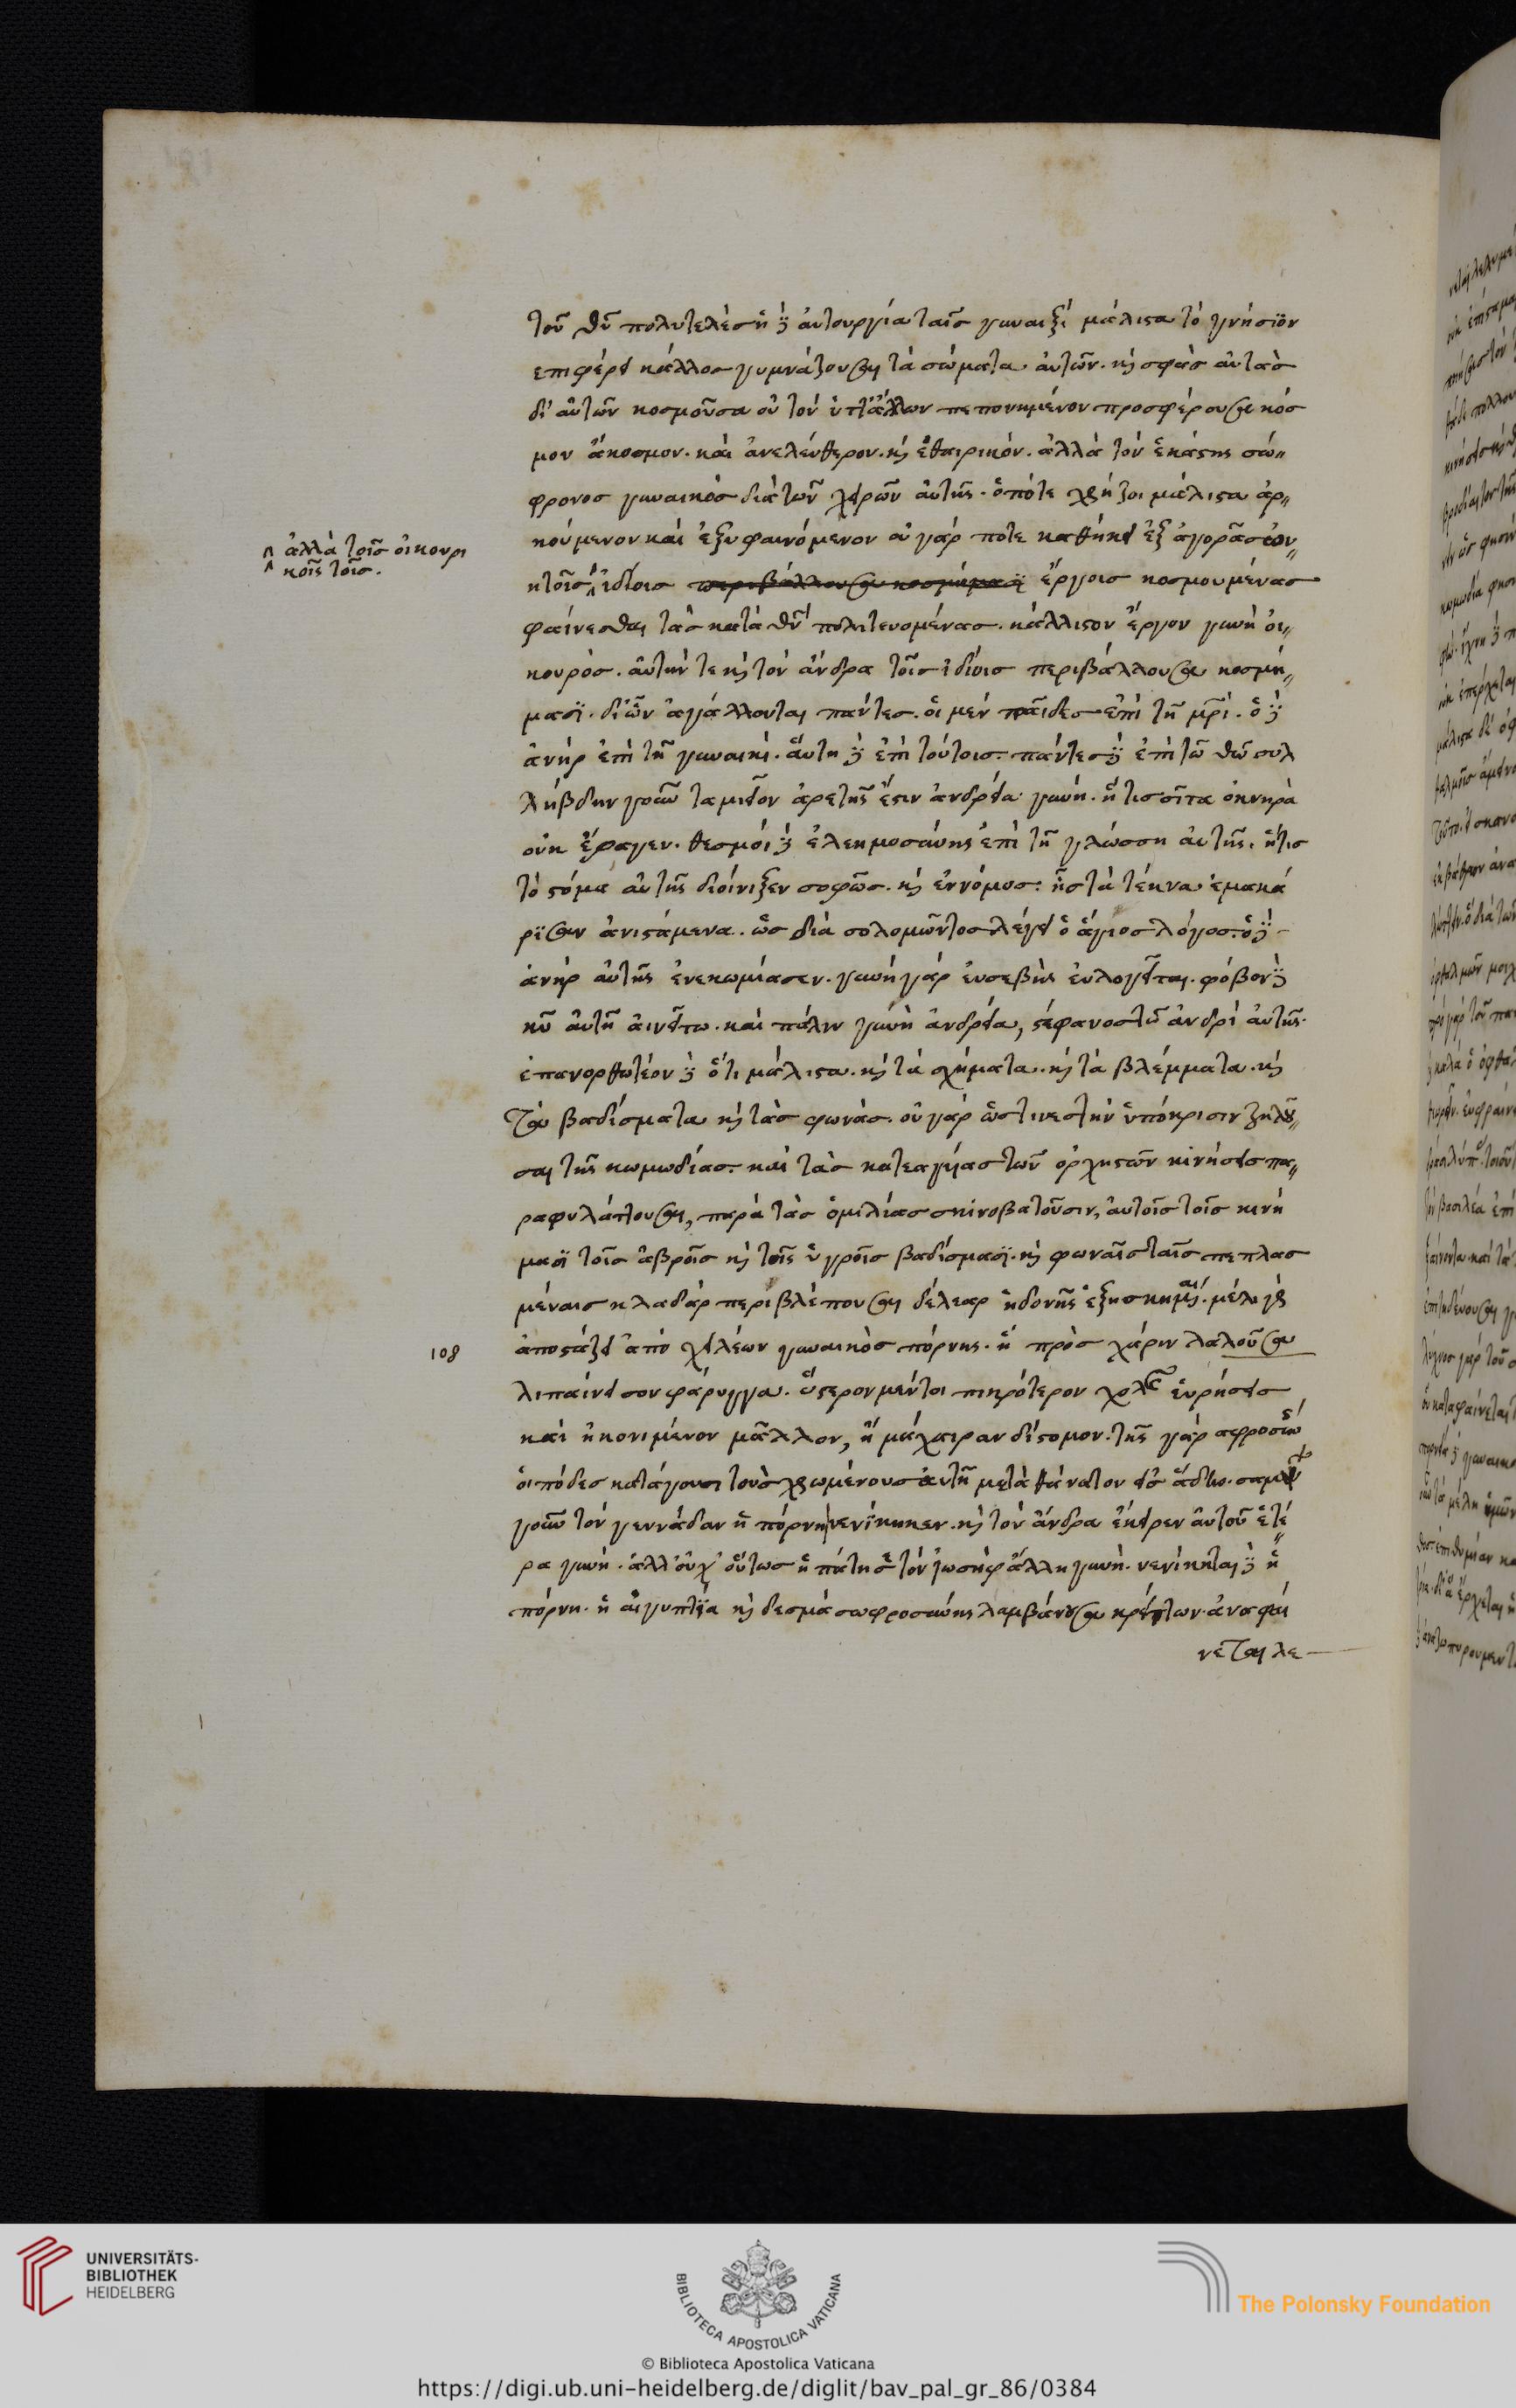 τοῦ θυ πολυτελέσ ἡ δὲ ἀυτουργία ταῖσ γυναιξὶ μάλιστα τὸ γνήσϊον
επιφέρει κάλλοσ γυμνάζουσαι τὰ σώματα αὐτῶν. κ σφᾶσ αὐτὰσ
δι' αὑτῶν κοσμοῦσα οὐ τὸν ὑπ' ἄλλων πεπονημένον προσφέρουσαι κόσ
μον ἄκοσμον. καὶ ἀνελεύθερον. κ ἑταιρικόν. ἀλλὰ τὸν ἑκάστησ σώ„
φρονοσ γυναικὸσ διὰ τῶν χειρῶν αὐτῆσ. ὁπότε χρήζοι μάλιστα ἀρ„
κούμενον καὶ ἐξυφαινόμενον οὐ γάρ ποτε καθήκει ἐξ ἀγορᾶσ
ἀλλὰ τοῖσ οἰκουρι
κοῖς τοῖσ.
ἰδίοισ περιβάλλουσα κοσμήμασϊ ἔργοισ κοσμουμένασ
φαίνεσθαι τὰσ κατὰ θν πολιτευομένασ. κάλλιστον ἔργον γυνὴ οἰ„
κουρόσ. αὑτήν τε κ τὸν ἄνδρα τοῖσ ἰδίοισ περιβάλλουσα κοσμή„
μασϊ. δι' ὧν ἀγάλλονται πάντεσ. οἱ μὲν παῖδεσ ἐπὶ τῆ μρι. ὁ δὲ
ἀνὴρ ἐπὶ τῆ γυναικί. αὕτη δὲ ἐπὶ τούτοισ. πάντεσ δὲ ἐπὶ τῶ θῶ συλ
λήβδην γοῦν ταμιεῖον ἀρετῆσ ἐστιν ἀνδρεία γυνή. ἥτισ σῖτα ὀκνηρὰ
οὐκ ἔφαγεν. θεσμοὶ δὲ ἐλεημοσύνησ ἐπὶ τῆ γλώσση αὐτῆσ. ἥτισ
τὸ στόμα αὐτῆσ διοίνιξεν σοφῶσ. κ ἐννόμωσ: ἧσ τὰ τέκνα ἐμακά
ρϊσαν ἀνιστάμενα. ὡσ διὰ σολομῶντοσ λέγει ὁ ἅγιοσ λόγοσ. ὁ δὲ
ἀνὴρ αὐτῆσ ἐνεκωμίασεν. γυνὴ γὰρ ἐυσεβὴσ ἐυλογεῖται. φόβον δὲ
κυ αὐτὴ ἀινείτω. καὶ πάλιν γυνὴ ἀνδρεία, στέφανοσ τῶ ἀνδρὶ αὐτῆσ.
ἐπανορθωτέον δὲ ὅτι μάλιστα. κ τὰ σχήματα. κ τὰ βλέμματα. κ
τὰ βαδίσματα κ τὰσ φωνάσ. οὐ γὰρ ὥσ τινεσ τὴν ὑπόκρισιν ζηλοῦ„
σαι τῆσ κωμωδίασ. καὶ τὰσ κατεαγυίασ τῶν ὀρχηστῶν κινήσεισ πα„
ραφυλάττουσαι, παρὰ τὰσ ὁμιλίασ σκίνοβατοῦσιν, ἀυτοῖσ τοῖσ κινή
μασϊ τοῖσ ἁβροῖσ κ τοῖσ ὑγροῖσ βαδίσμασϊ. κ φωναῖσ ταῖσ πεπλασ
μέναισ κλαδὰρ περιβλέπουσαι δέλεαρ ἡδονῆσ ἐξησκημέναι. μέλι γὰρ
108
ἀποστάζει ἀπὸ χειλέων γυναικὸσ πόρνησ. ἥ πρὸσ χάριν λαλοῦσα
λιπαίνει σον φάρυγγα. ὕστερον μέντοι πικρότερον χολῆσ ἑυρήσεισ
καὶ ἠκονιμένον μᾶλλον, ἢ μάχαιραν δίστομον. τῆσ γὰρ αφροσύνησ
ὁι πόδεσ κατάγουσι τοὺσ χρωμένουσ ἀυτῆ μετὰ θάνατον εἰσ ἅδην.
γοῦν τὸν γεννάδαν ἡ πόρνη νενίκηκεν. κ τὸν ἄνδρα ἔκειρεν αὐτοῦ ἑτέ
ρα γυνή. ἀλλ' οὐχ οὕτωσ ἠπάτησε τὸν ἰωσὴφ ἄλλη γυνή. νενίκηται δὲ ἡ
πόρνη. ἡ αἰγυπτία κ δεσμὰ σωφροσύνησ λαμβάνουσα κρείττων. ἀναφαί
νεται λε
UNIVERSITÄTS-
BIBLIOTHEK
HEIDELBERG
BIBLIOTECA APOSTOLICA VATICANA
The Polonsky Foundation
© Biblioteca Apostolica Vaticana
https://digi.ub.uni-heidelberg.de/diglit/bav_pal_gr_86/0384